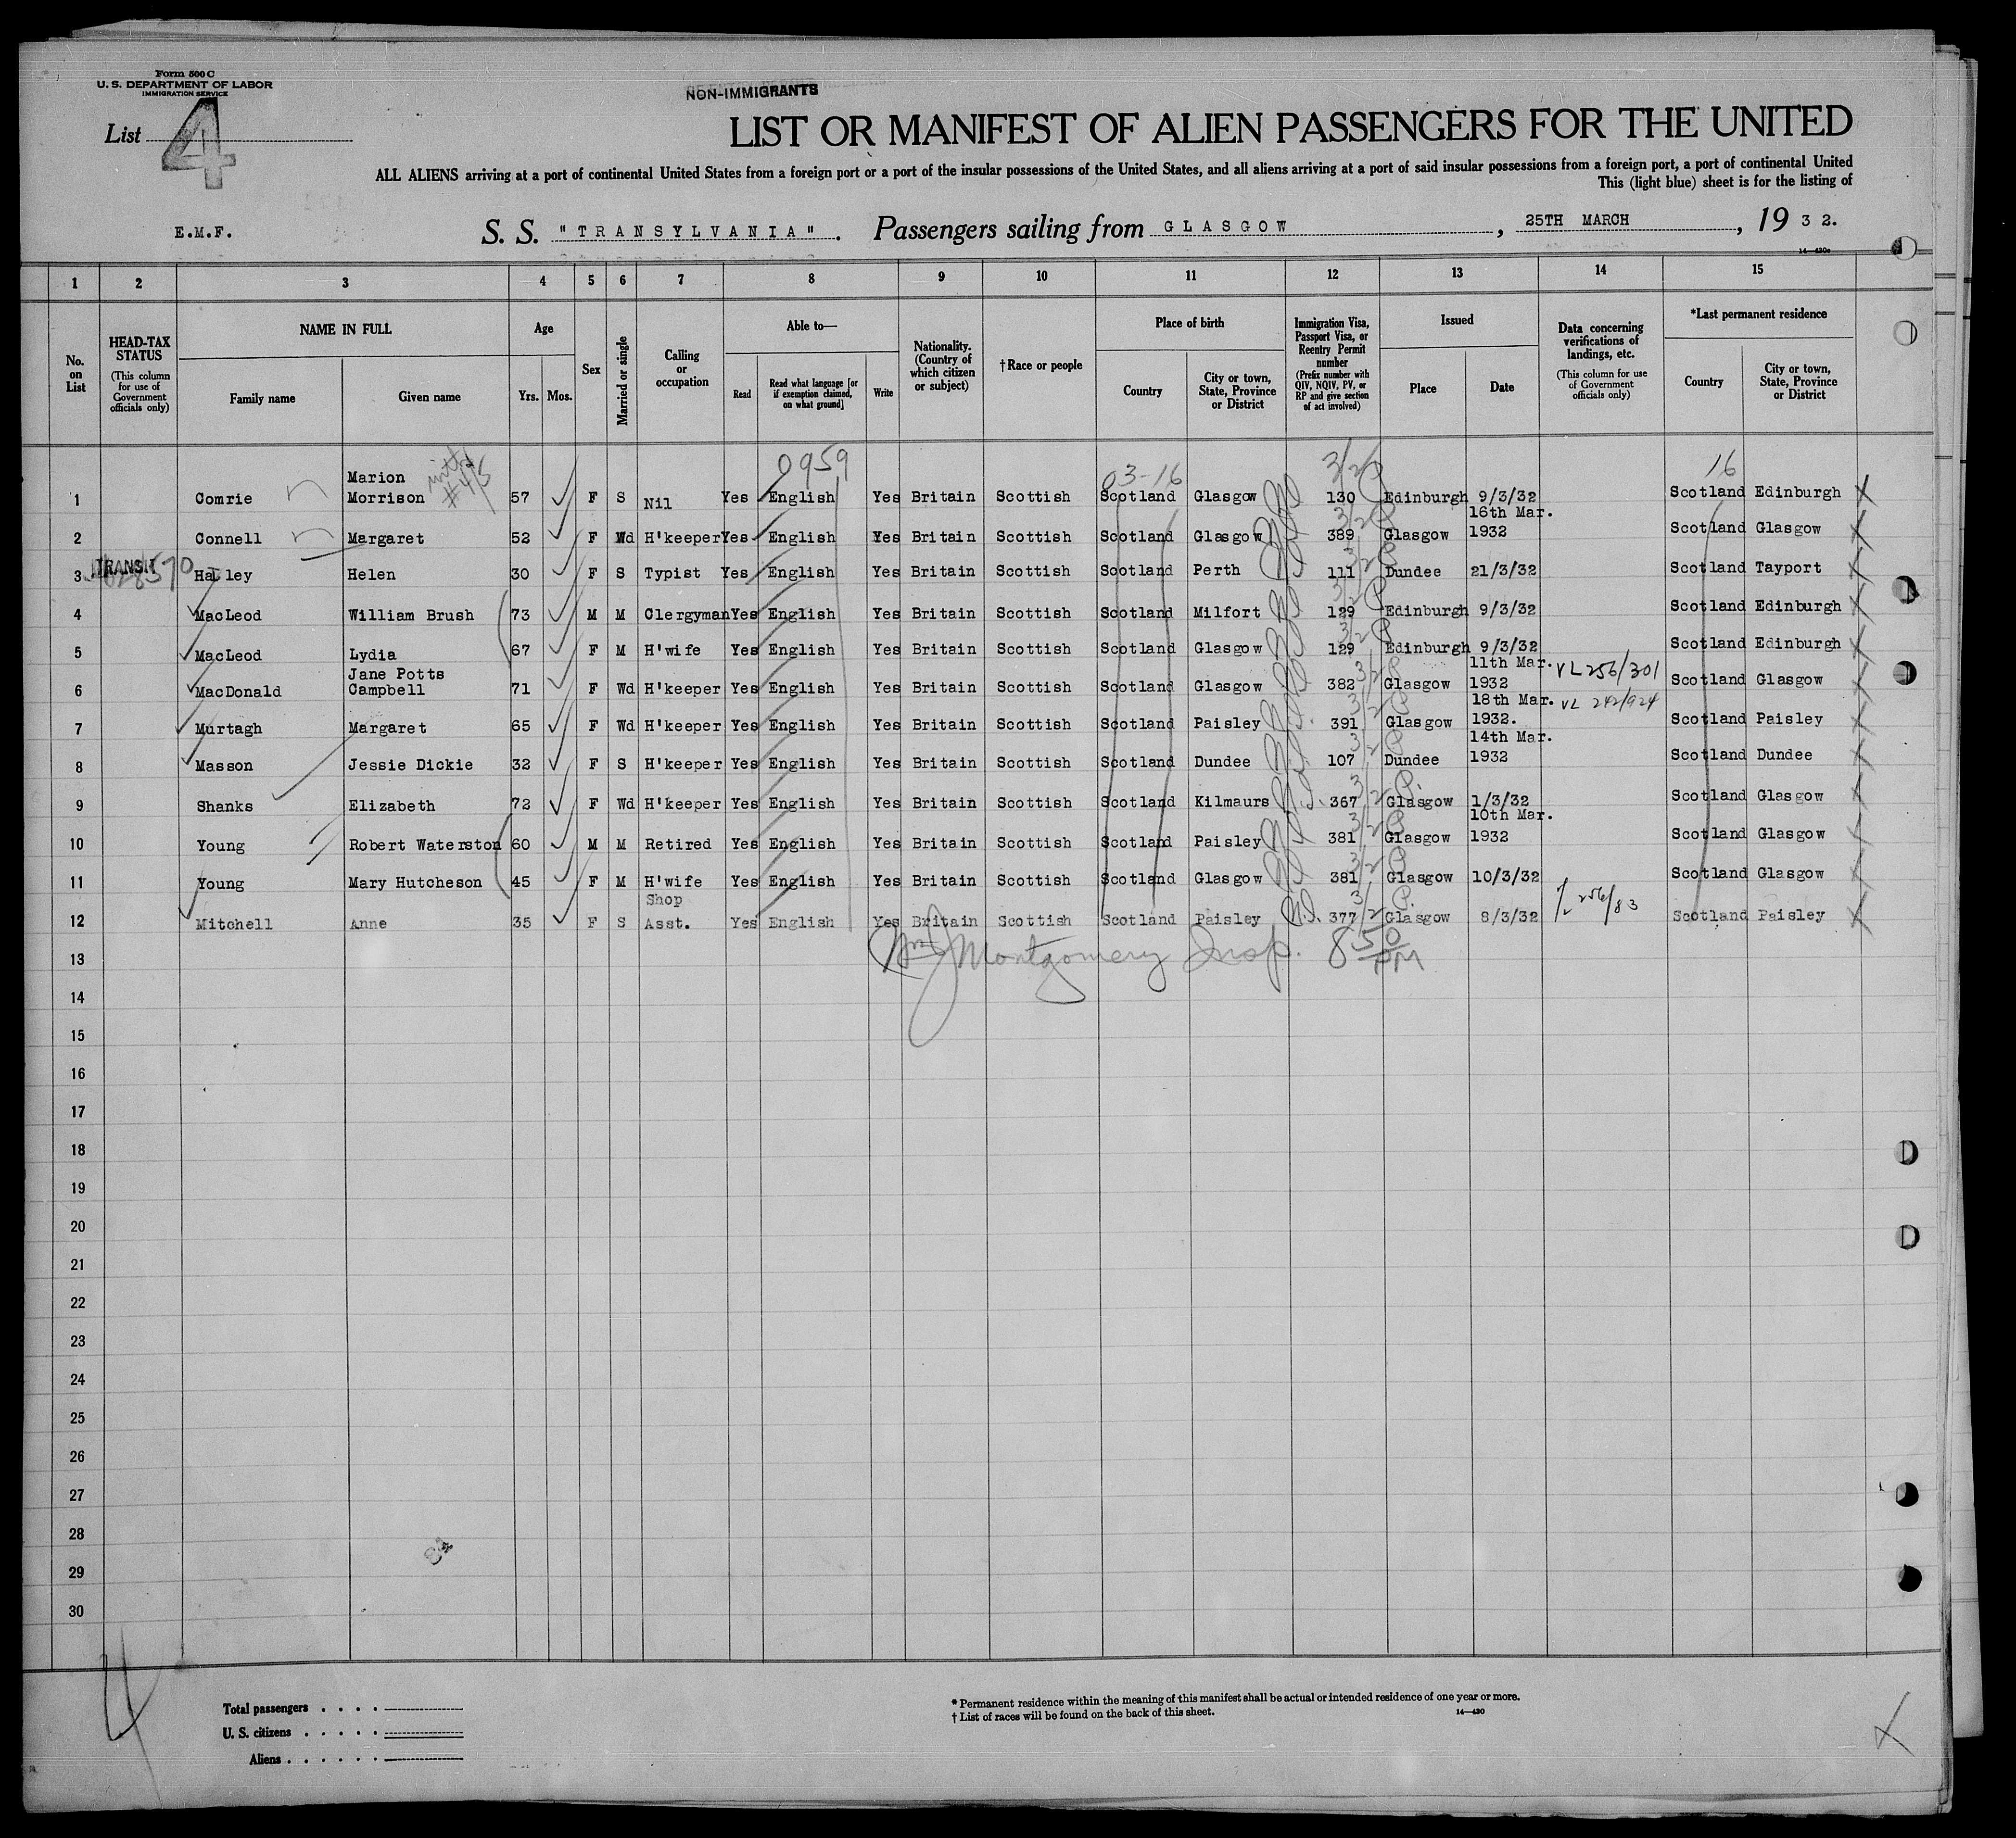 Form 500 C
U. S. DEPARTMENT OF LABOR
IMMIGRATION SERVICE
NON-IMMIGRANTS
List 4
LIST OR MANIFEST OF ALIEN PASSENGERS FOR THE UNITED
ALL ALIENS arriving at a port of continental United States from a foreign port or a port of the insular possessions of the United States, and all aliens arriving at a port of said insular possessions from a foreign port, a port of continental United
This (light blue) sheet is for the listing of
E.M.F. S. S. "TRANSYLVANIA". Passengers sailing from GLASGOW, 25TH MARCH, 19 3 2.
14—430a
1 2 3 4 5 6 7 8 9 10 11 12 13 14 15
No. on List
HEAD-TAX STATUS (This column for use of Government officials only)
NAME IN FULL Family name Given name
Age Yrs. Mos.
Sex
Married or single
Calling or occupation
Able to— Read Read what language [or if exemption claimed, on what ground] Write
Nationality. (Country of which citizen or subject)
†Race or people
Place of birth Country City or town, State, Province or District
Immigration Visa, Passport Visa, or Reentry Permit number (Prefix number with QIV, NQIV, PV, or RP and give section of act involved)
Issued Place Date
Data concerning verifications of landings, etc. (This column for use of Government officials only)
*Last permanent residence Country City or town, State, Province or District
0959 03-16 3/2 16
1 Comrie Marion Morrison 57 F S Nil Yes English Yes Britain Scottish Scotland Glasgow 130 Edinburgh 9/3/32 Scotland Edinburgh
2 Connell Margaret 52 F Wd H'keeper Yes English Yes Britain Scottish Scotland Glasgow 389 Glasgow 16th Mar. 1932 Scotland Glasgow
3 TRANSIT Halley Helen 30 F S Typist Yes English Yes Britain Scottish Scotland Perth 111 Dundee 21/3/32 Scotland Tayport
4 MacLeod William Brush 73 M M Clergyman Yes English Yes Britain Scottish Scotland Milfort 129 Edinburgh 9/3/32 Scotland Edinburgh
5 MacLeod Lydia 67 F M H'wife Yes English Yes Britain Scottish Scotland Glasgow 129 Edinburgh 9/3/32 Scotland Edinburgh
6 MacDonald Jane Potts Campbell 71 F Wd H'keeper Yes English Yes Britain Scottish Scotland Glasgow 382 Glasgow 11th Mar. 1932 VL 256/301 Scotland Glasgow
7 Murtagh Margaret 65 F Wd H'keeper Yes English Yes Britain Scottish Scotland Paisley 391 Glasgow 18th Mar. 1932. VL 242/924 Scotland Paisley
8 Masson Jessie Dickie 32 F S H'keeper Yes English Yes Britain Scottish Scotland Dundee 107 Dundee 14th Mar. 1932 Scotland Dundee
9 Shanks Elizabeth 72 F Wd H'keeper Yes English Yes Britain Scottish Scotland Kilmaurs 367 Glasgow 1/3/32 Scotland Glasgow
10 Young Robert Waterston 60 M M Retired Yes English Yes Britain Scottish Scotland Paisley 381 Glasgow 10th Mar. 1932 Scotland Glasgow
11 Young Mary Hutcheson 45 F M H'wife Yes English Yes Britain Scottish Scotland Glasgow 381 Glasgow 10/3/32 Scotland Glasgow
12 Mitchell Anne 35 F S Shop Asst. Yes English Yes Britain Scottish Scotland Paisley 377 Glasgow 8/3/32 Scotland Paisley
13 Montgomery Insp. 8 50 PM
14
15
16
17
18
19
20
21
22
23
24
25
26
27
28
29
30
4
Total passengers . . . .
U. S. citizens . . . . .
Aliens . . . . . .
* Permanent residence within the meaning of this manifest shall be actual or intended residence of one year or more.
† List of races will be found on the back of this sheet.
14—430